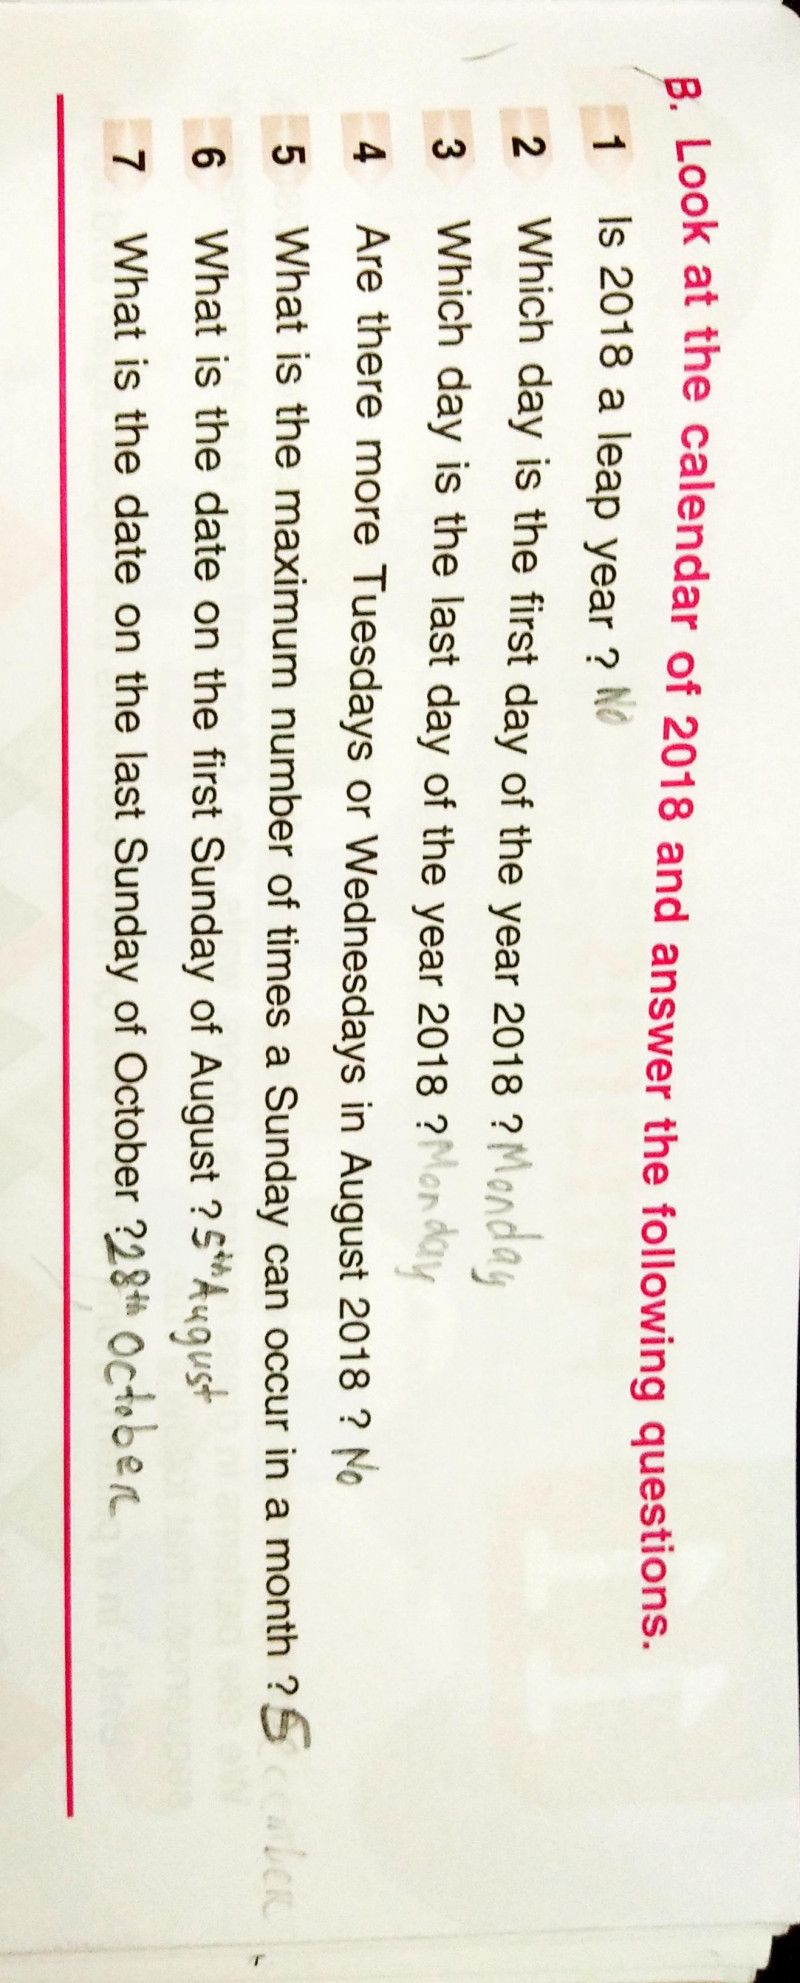 B. Look at the calendar of 2018 and answer the following questions.
1 Is 2018 a leap year ? No
2 Which day is the first day of the year 2018 ? Monday
3 Which day is the last day of the year 2018 ? Monday
4 Are there more Tuesdays or Wednesdays in August 2018 ? No
5 What is the maximum number of times a Sunday can occur in a month ? 5
6 What is the date on the first Sunday of August ? 5th August
7 What is the date on the last Sunday of October ? 28th October